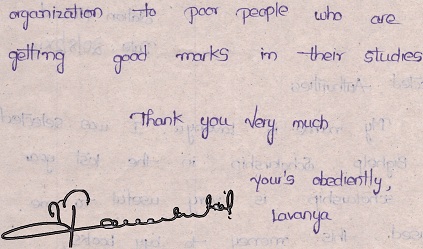 organization to poor people who are
getting good marks in their studies
Thank you very much
your's obediently,
Lavanya